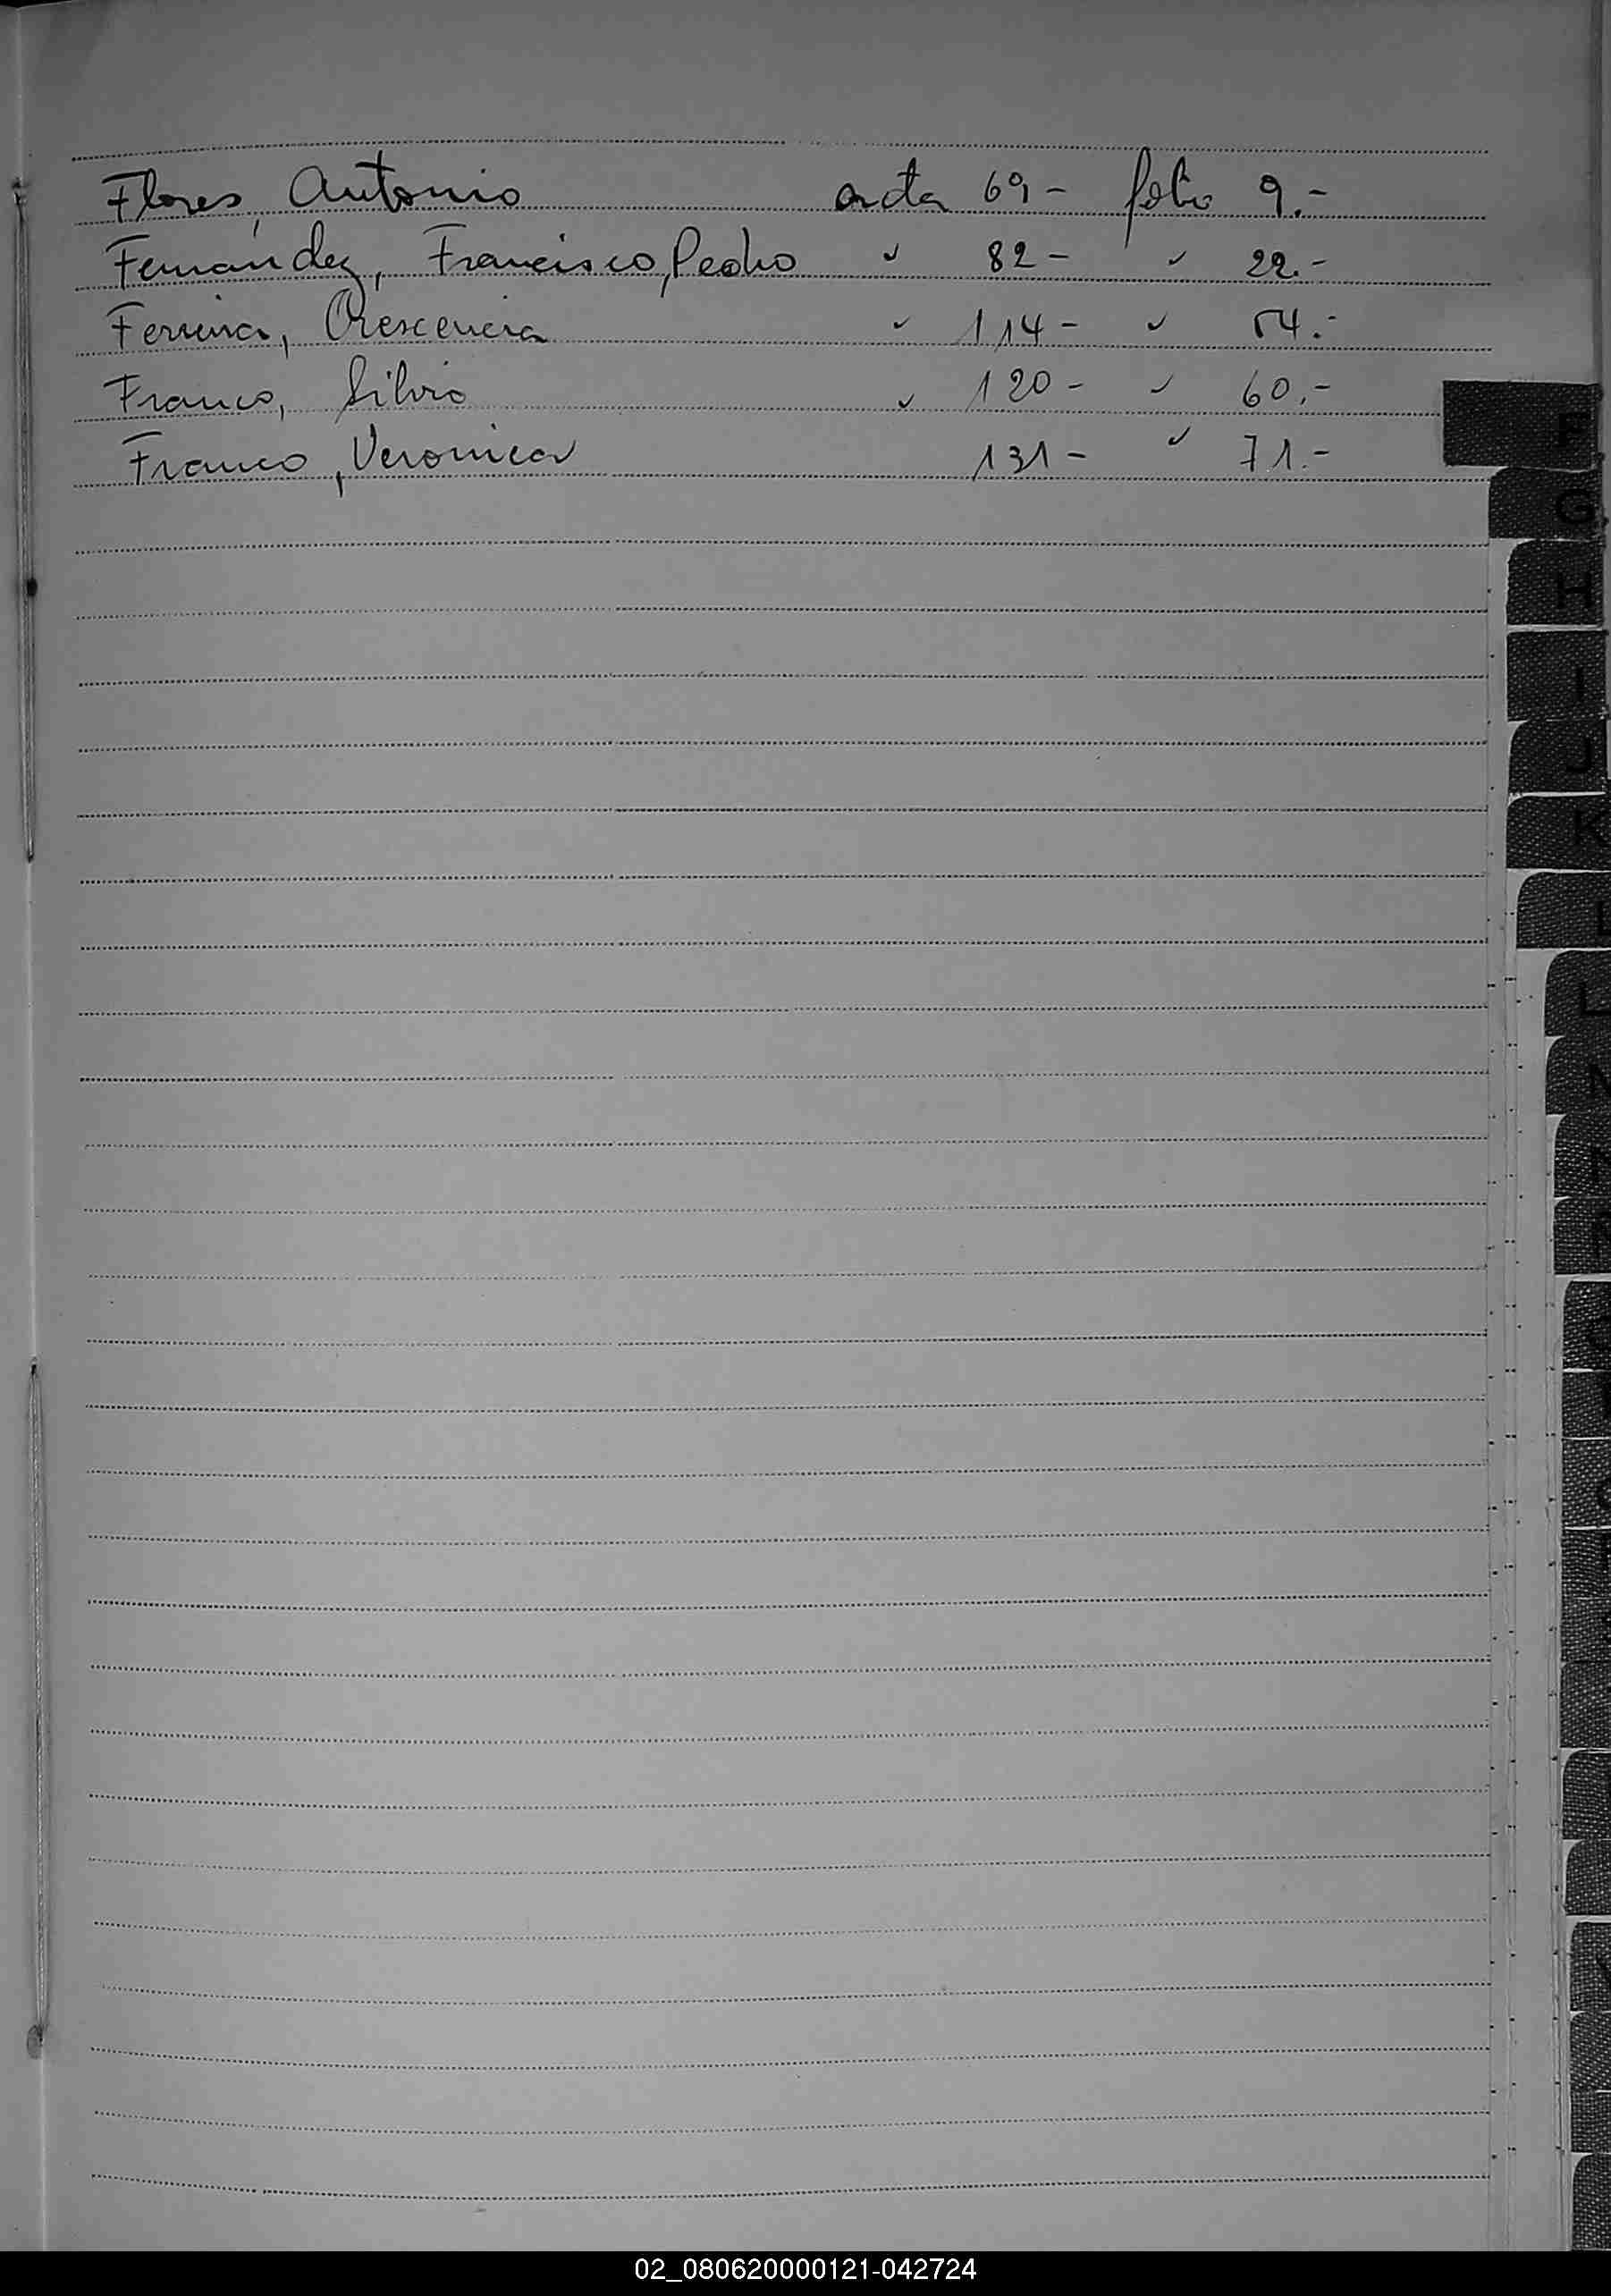 Flores, Antonio acta 69- folio 9.-
Fernandez, Francisco, Pedro " 82- " 22.-
Ferreira, Crescencia " 114- " 54.-
Franco, Silvio " 120- " 60.-
Franco, Veronica 131- " 71.-
F
G
H
I
J
K
L
02_080620000121-042724